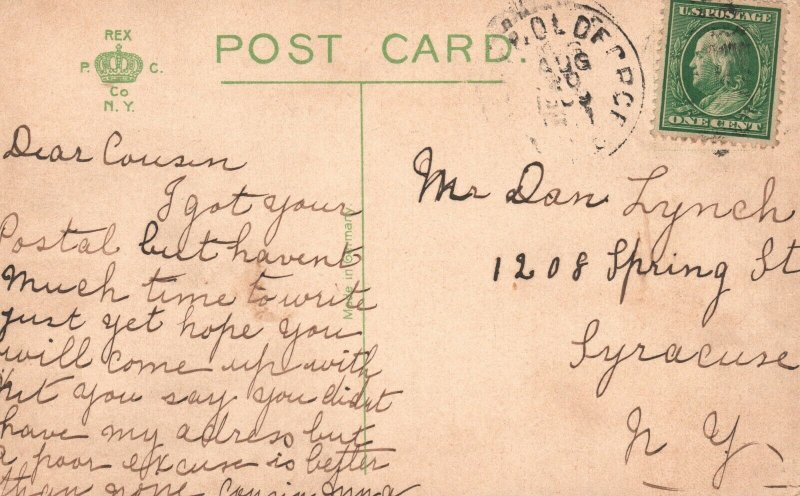 REX
P. C.
Co
N.Y.
POST CARD.
OLD FORGE
AUG
U.S. POSTAGE
ONE CENT
Made in Germany
Dear Cousin
I got your
Postal but havent
much time to write
just yet hope you
will come up with
but you say you didnt
have my adress but
a poor excuse is better
than none Cousin Anna
Mr Dan Lynch
1208 Spring St
Syracuse
N Y